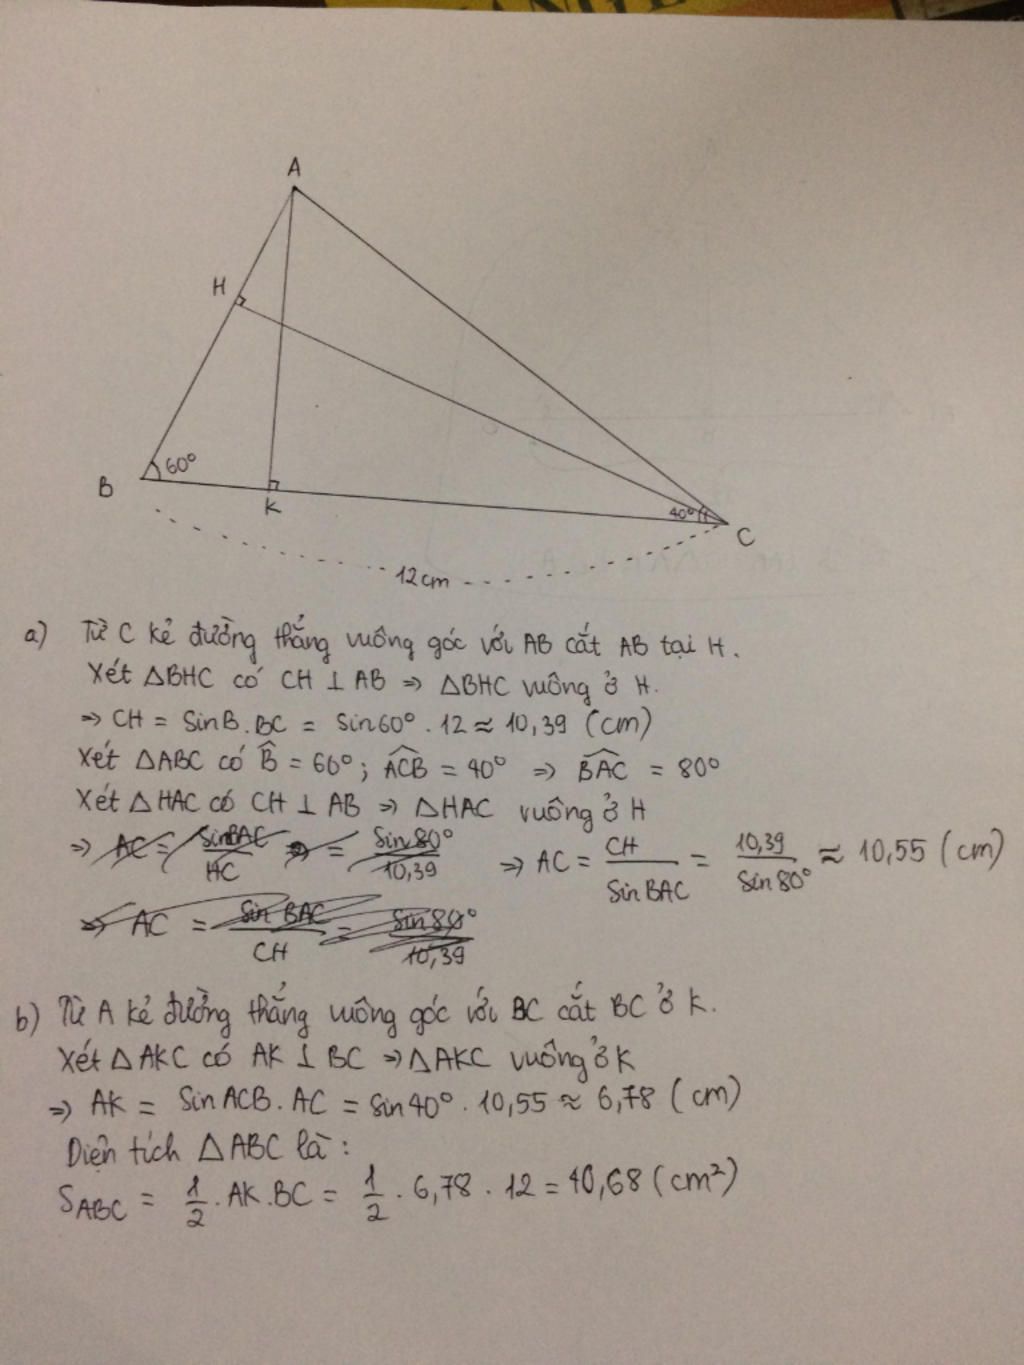 A
H
B
60°
K
40°
C
12cm
a) Từ C kẻ đường thẳng vuông góc với AB cắt AB tại H.
Xét △BHC có CH ⊥ AB ⇒ △BHC vuông ở H.
⇒ CH = SinB.BC = Sin60°.12 ≈ 10,39 (cm)
Xét △ABC có B̂ = 60°; ACB̂ = 40° ⇒ BAĈ = 80°
Xét △HAC có CH ⊥ AB ⇒ △HAC vuông ở H
⇒ AC = SinBAC/HC ⇒ = Sin80°/10,39 ⇒ AC = CH/SinBAC = 10,39/Sin80° ≈ 10,55 (cm)
⇒ AC = Sin BAC/CH = Sin80°/10,39
b) Từ A kẻ đường thẳng vuông góc với BC cắt BC ở K.
Xét △AKC có AK ⊥ BC ⇒ △AKC vuông ở K
⇒ AK = SinACB.AC = Sin40°.10,55 ≈ 6,78 (cm)
Diện tích △ABC là:
S_ABC = 1/2.AK.BC = 1/2.6,78.12 = 40,68 (cm²)